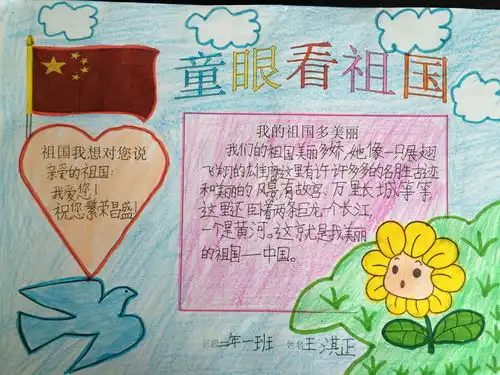 童眼看祖国
祖国我想对您说
亲爱的祖国:
我爱您!
祝您繁荣昌盛!
我的祖国多美丽
我们的祖国美丽多娇,她像一只展翅
飞翔的雄鹰。这里有许许多多的名胜古迹
和美丽的风景,有故宫、万里长城等等
这里还卧着两条巨龙,一个长江,
一个是黄河。这就是我美丽
的祖国——中国。
班级 二年一班 姓名 王淇正